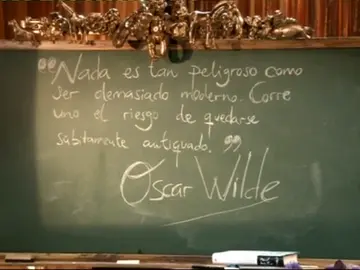 “Nada es tan peligroso como
ser demasiado moderno. Corre
uno el riesgo de quedarse
súbitamente anticuado.”
Oscar Wilde